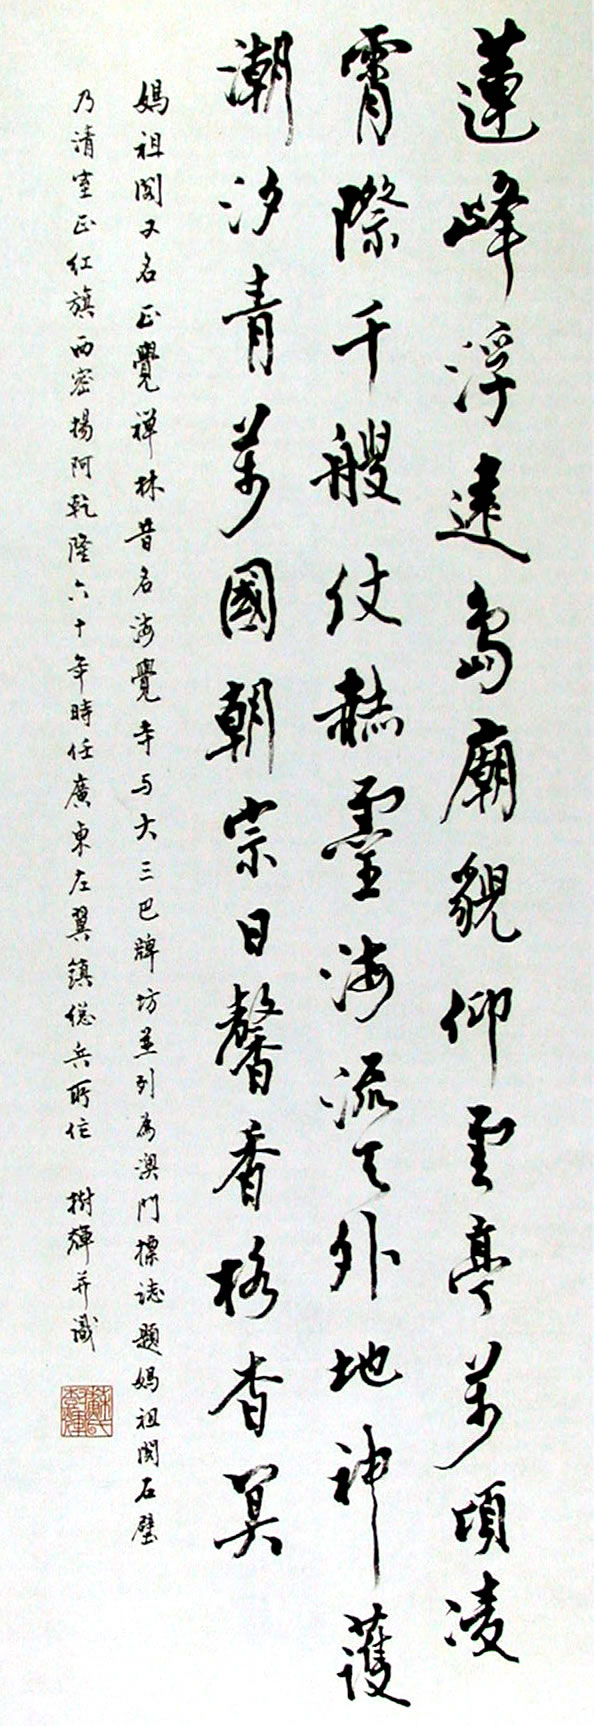 蓮峰浮遠島廟貌仰雲亭萬頃凌
霄際千艘仗赫靈海流天外地神護
潮汐青萬國朝宗日馨香格杳冥
媽祖閣又名正覺禪林昔名海覺寺与大三巴牌坊並列為澳門標誌題媽祖閣石壁
乃清室正紅旗西密揚阿乾隆六十年時任廣東左翼鎮總兵所作 樹輝并識